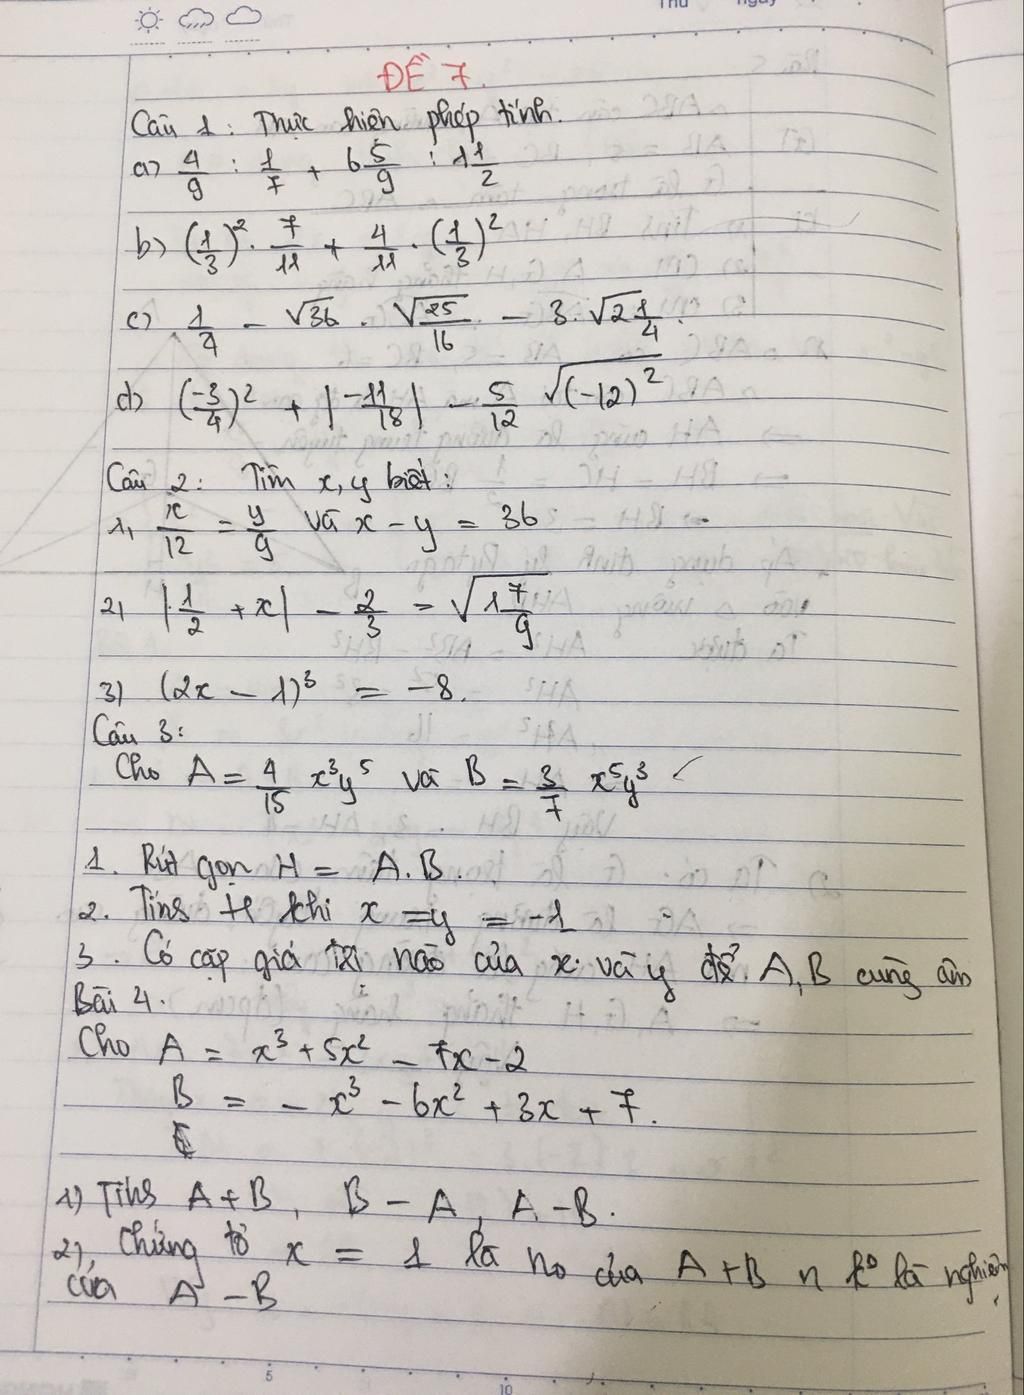 Thứ ngày
ĐỀ 7.
Câu 1: Thực hiện phép tính.
a) 4/9 : 1/7 + 6 5/9 : 1 1/2
b) (1/3)² . 7/11 + 4/11 . (1/3)²
c) 1/4 - √36 . √25/16 - 3. √2 1/4.
d) (-3/4)² + |-11/18| - 5/12 √(-12)²
Câu 2: Tìm x, y biết:
1, x/12 = y/9 và x - y = 36
2) |1/2 + x| - 2/3 = √1 7/9
3) (2x - 1)³ = -8.
Câu 3:
Cho A = 4/15 x³y⁵ và B = 3/7 x⁵y³
1. Rút gọn H = A.B.
2. Tính H khi x = y = -1
3. Có cặp giá trị nào của x và y để A, B cùng âm
Bài 4.
Cho A = x³ + 5x² - 7x - 2
B = - x³ - 6x² + 3x + 7.
1) Tính A + B, B - A, A - B.
2) Chứng tỏ x = 1 là no của A + B n k⁰ là nghiệm
của A - B
5
10